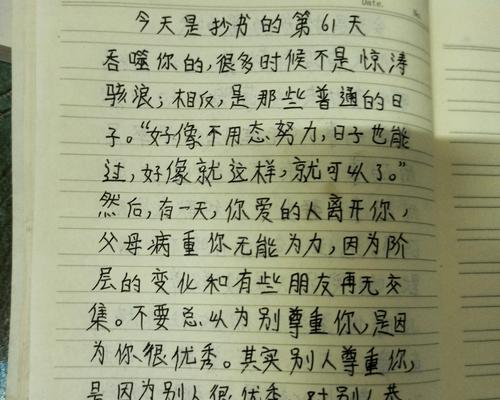 Date.
今天是抄书的第61天
吞噬你的,很多时候不是惊涛
骇浪;相反,是那些普通的日
子。“好像不用态努力,日子也能
过,好像就这样,就可以了。”
然后,有一天,你爱的人离开你,
父母病重你无能为力,因为阶
层的变化和有些朋友再无交
集。不要总以为别尊重你,是因
为你很优秀。其实别人尊重你,
是因为别人很优秀。对别人恭